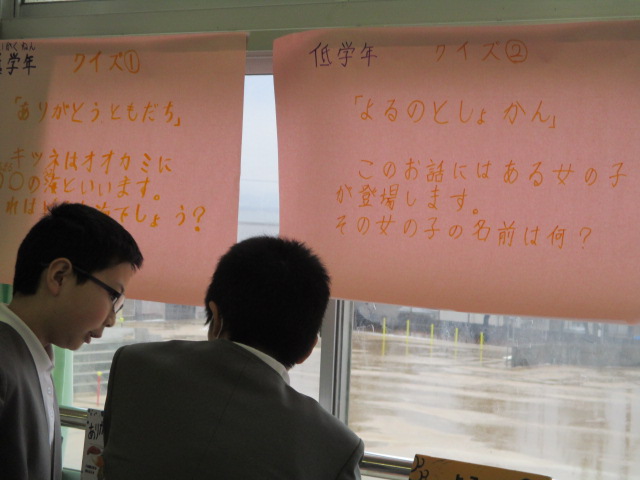 低学年 クイズ①
「ありがとうともだち」
キツネはオオカミに
〇の落といいます。
しょう?
低学年 クイズ②
「よるのとしょかん」
このお話にはある女の子
が登場します。
その女の子の名前は何?